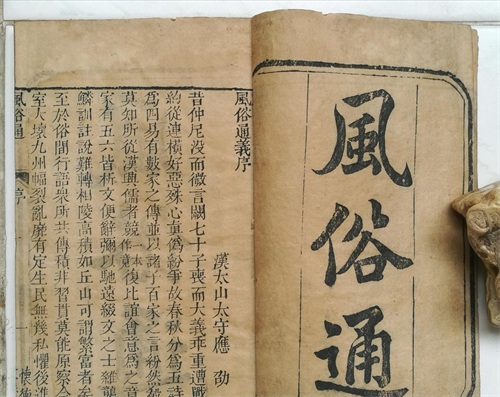 風俗通
風俗通義序
漢太山太守應劭
昔仲尼没而微言闕七十子喪而大義乖重遭戰
約從連横好惡殊心真偽紛爭故春秋分為五詩
為四易有數家之傳並以諸子百家之言紛然殽
莫知所從漢興儒者競後比誼會意為之章
家有五六皆析文便辭彌以馳遠綴文之士雜襲
鱗訓註說難轉相陵高積如丘山可謂繁富者矣
至於俗間行語衆所共傳積非習貫莫能原察今
室大壞九州幅裂亂靡有定生民無幾私懼後進
風俗通 序 一 懷德